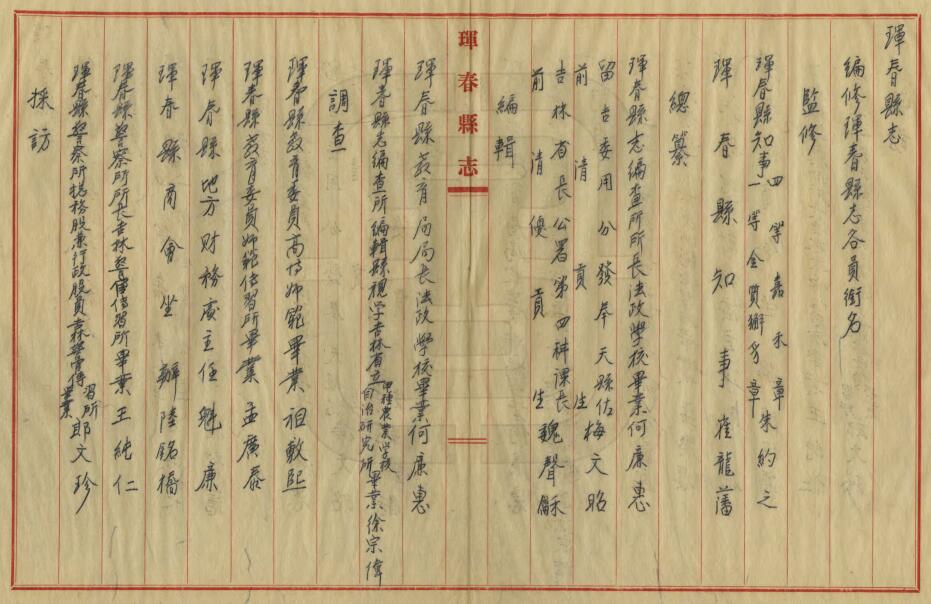 琿春縣志
編修琿春縣志各員銜名
監修
琿春縣知事四等嘉禾章一等金質獬豸章朱約之
琿春縣知事崔龍藩
總纂
琿春縣志編查所所長法政學校畢業何廉惠
留吉委用分發奉天縣佐前清貢生梅文昭
吉林省長公署第四科課長前清優貢生魏聲龢
琿春縣志
編輯
琿春縣教育局局長法政學校畢業何廉惠
琿春縣志編查所編輯縣視學吉林省立甲種農業學校自治研究所畢業徐宗偉
調查
琿春縣教育委員高等師範畢業祖勲熙
琿春縣教育委員師範傳習所畢業孟廣泰
琿春縣地方財務處主任魁廉
琿春縣商會坐辦陸銘橋
琿春縣警察所所長吉林警傳習所畢業王純仁
琿春縣警察所總務股兼行政股員吉林警傳習所畢業郎文珍
採訪